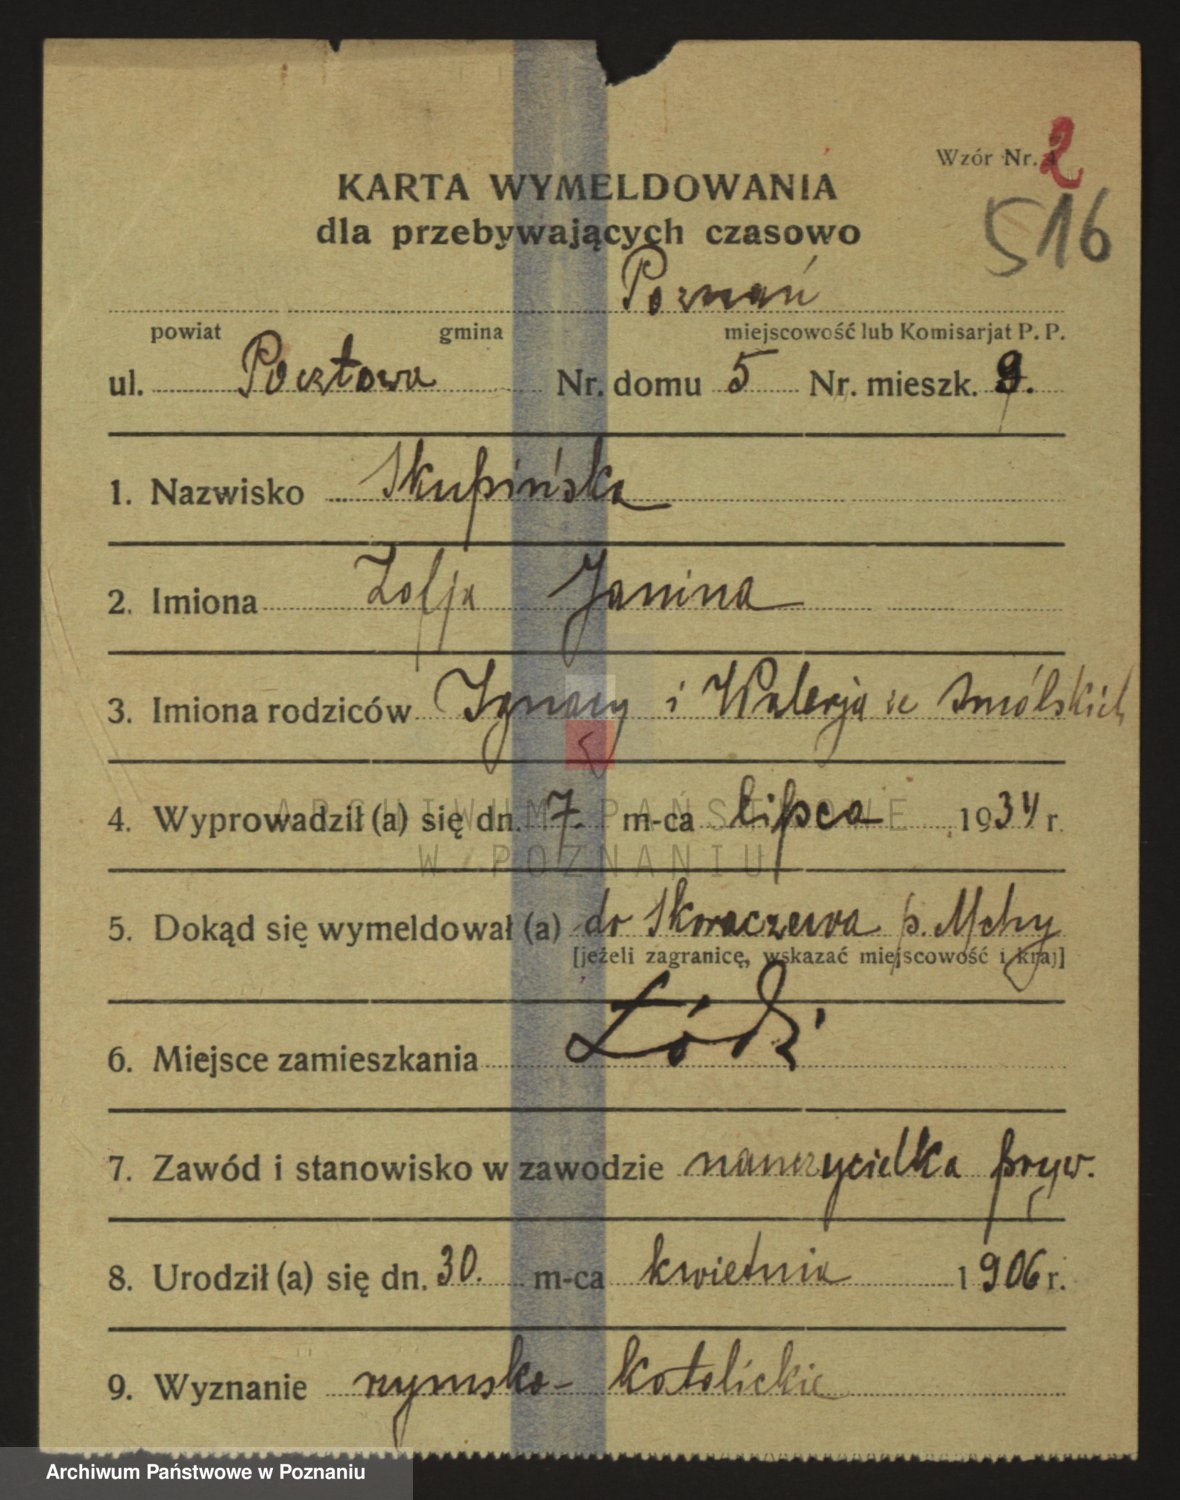 Wzór Nr. 4 2
516
KARTA WYMELDOWANIA
dla przebywających czasowo
Poznań
powiat gmina miejscowość lub Komisarjat P. P.
ul. Pocztowa Nr. domu 5 Nr. mieszk. 9.
1. Nazwisko Skupińska
2. Imiona Zofja Janina
3. Imiona rodziców Ignacy i Walerja ze Smólskich
4. Wyprowadził (a) się dn. 7. m-ca lipca 1934 r.
ARCHIWUM PAŃSTWOWE
W POZNANIU
5. Dokąd się wymeldował (a) do Skoraczewa p. Mchy
[jeżeli zagranicę, wskazać miejscowość i kraj]
6. Miejsce zamieszkania Łódź
7. Zawód i stanowisko w zawodzie nauczycielka pryw.
8. Urodził (a) się dn. 30. m-ca kwietnia 1906 r.
9. Wyznanie rzymsko-katolickie
Archiwum Państwowe w Poznaniu